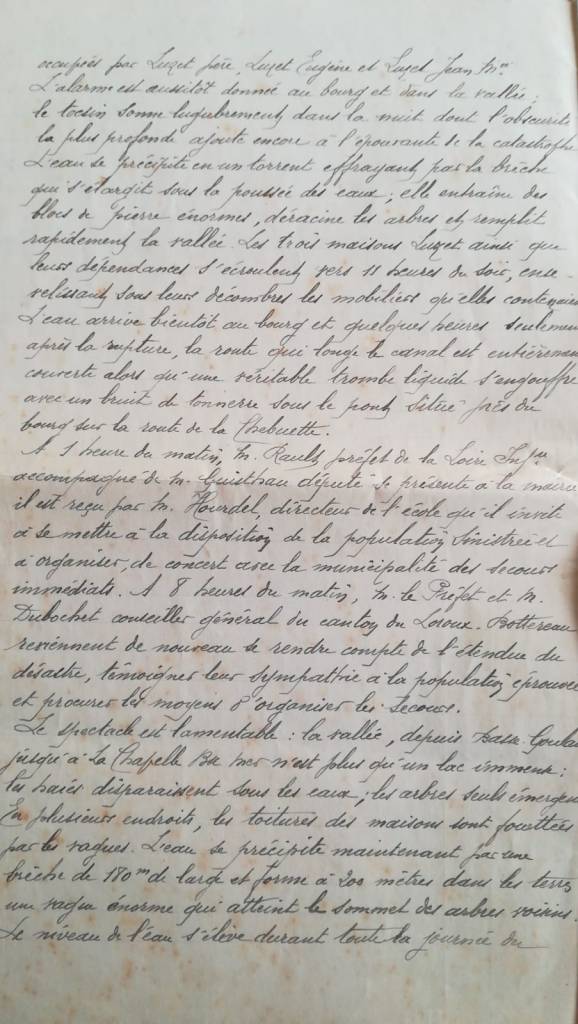 occupées par Luzet père, Luzet Eugène et Luzet Jean M.
L'alarme est aussitôt donnée au bourg et dans la vallée;
le tocsin sonne lugubrement dans la nuit dont l'obscurité
la plus profonde ajoute encore à l'épouvante de la catastrophe
L'eau se précipite en un torrent effrayant par la brèche
qui s'élargit sous la poussée des eaux; elle entraîne des
blocs de pierre énormes, déracine les arbres et remplit
rapidement la vallée. Les trois maisons Luzet ainsi que
leurs dépendances s'écroulent vers 11 heures du soir, ense-
velissant sous leurs décombres les mobiliers qu'elles contenaient
L'eau arrive bientôt au bourg et quelques heures seulement
après la rupture, la route qui longe le canal est entièrement
couverte alors qu'une véritable trombe liquide s'engouffre
avec un bruit de tonnerre sous le pont situé près du
bourg sur la route de la Chebuette.
A 1 heure du matin, M. Rault préfet de la Loire Infre
accompagné de M. Guisthau député se présente à la mairie
il est reçu par M. Hourdel, directeur de l'école qu'il invite
à se mettre à la disposition de la population sinistrée et
à organiser, de concert avec la municipalité des secours
immédiats. A 8 heures du matin, M. le Préfet et M.
Dubochet conseiller général du canton du Loroux-Bottereau
reviennent de nouveau se rendre compte de l'étendue du
désastre, témoigner leur sympathie à la population éprouvée
et procurer les moyens d'organiser les secours.
Le spectacle est lamentable: la vallée, depuis Basse-Goulaine
jusqu'à La Chapelle Bse Mer n'est plus qu'un lac immense:
les haies disparaissent sous les eaux; les arbres seuls émergent
En plusieurs endroits, les toitures des maisons sont fouettées
par les vagues. L'eau se précipite maintenant par une
brèche de 180m de large et forme à 200 mètres dans les terres
une vague énorme qui atteint le sommet des arbres voisins.
Le niveau de l'eau s'élève durant toute la journée du